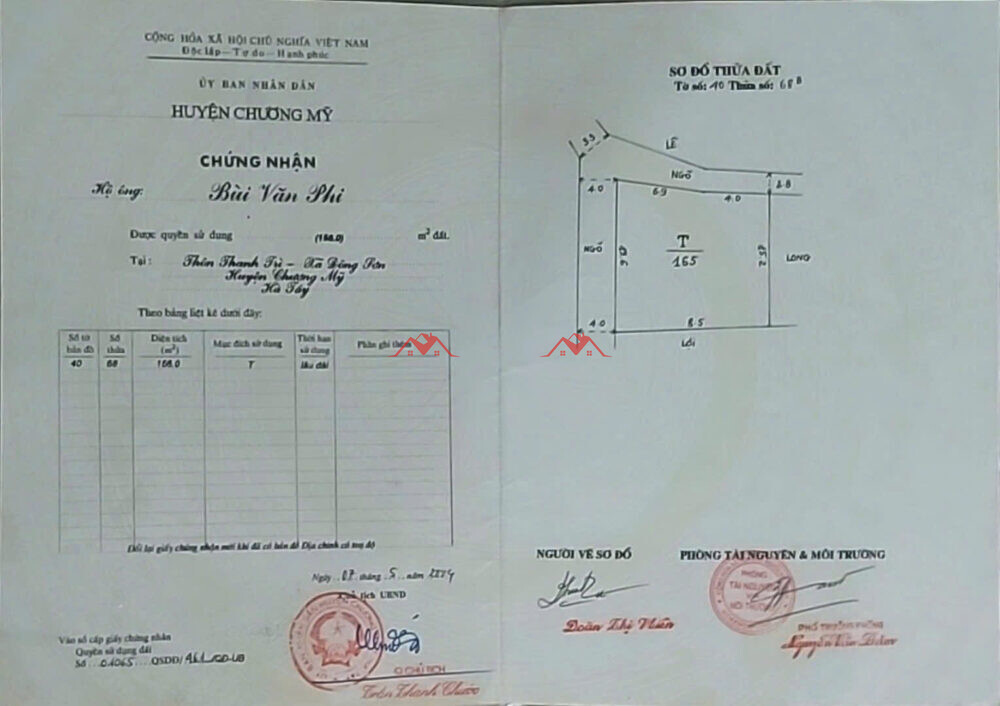 CỘNG HÒA XÃ HỘI CHỦ NGHĨA VIỆT NAM
Độc lập - Tự do - Hạnh phúc
ỦY BAN NHÂN DÂN
HUYỆN CHƯƠNG MỸ
CHỨNG NHẬN
Hộ ông: Bùi Văn Phi
Được quyền sử dụng (166.0) m² đất.
Tại: Thôn Thanh Trì - Xã Đông Sơn
Huyện Chương Mỹ
Hà Tây
Theo bảng liệt kê dưới đây:
Số tờ bản đồ Số thửa Diện tích (m²) Mục đích sử dụng Thời hạn sử dụng Phần ghi thêm
40 68 166.0 T lâu dài
Đổi lại giấy chứng nhận mới khi đã có bản đồ Địa chính có toạ độ
Ngày 07 tháng 5 năm
Chủ tịch UBND
Vào sổ cấp giấy chứng nhận
Quyền sử dụng đất
Số 01065 QSDD/ QD-UB
CHỦ TỊCH
Trần Thanh
SƠ ĐỒ THỬA ĐẤT
Tờ số: 40 Thửa số: 68 B
3.5
LÊ
NGÕ
4.0
6.9
4.0
2.8
NGÕ
T
165
LONG
4.0
8.5
LỐI
NGƯỜI VẼ SƠ ĐỒ
PHÒNG TÀI NGUYÊN & MÔI TRƯỜNG
PHÒNG
TÀI NGUYÊN
VÀ
MÔI TRƯỜNG
Đoàn Thị
PHÓ TRƯỞNG PHÒNG
Nguyễn Văn